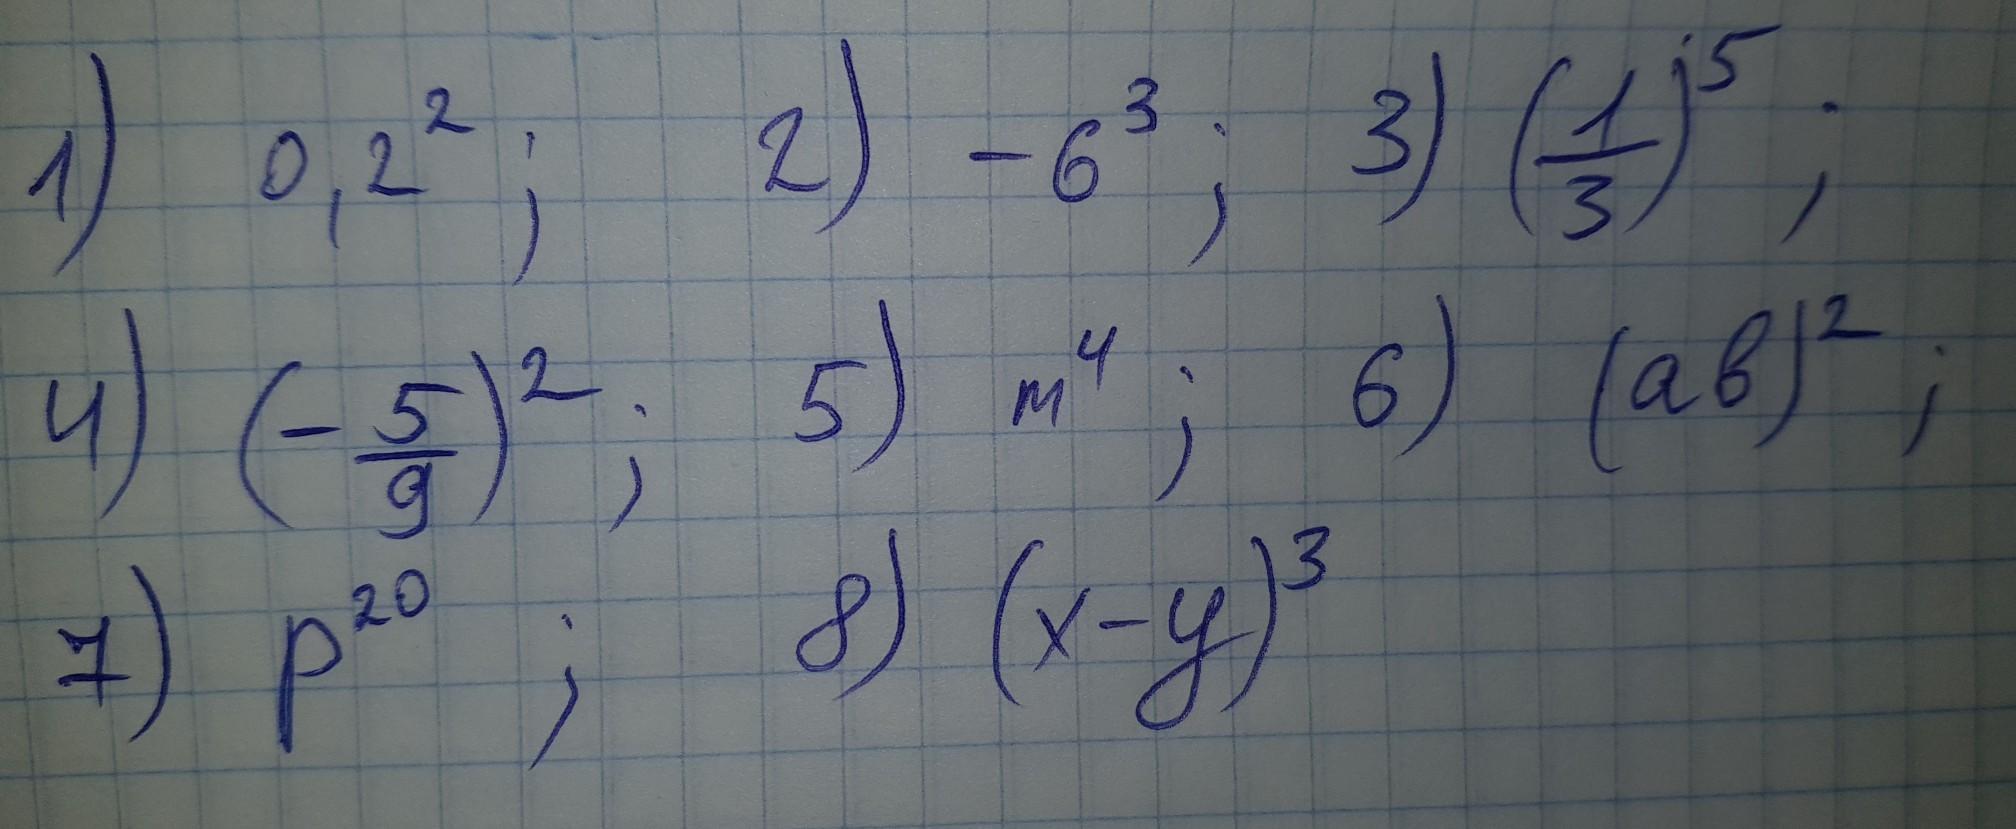 1) 0,2²; 2) -6³; 3) (1/3)⁵;
4) (-5/9)²; 5) m⁴; 6) (ab)²;
7) p²⁰; 8) (x-y)³